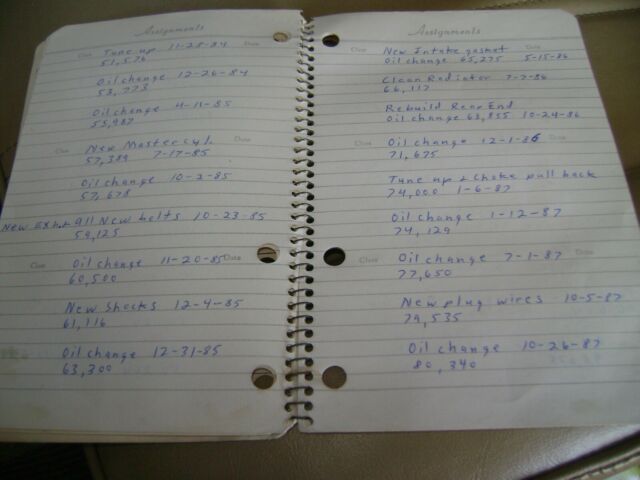 Assignments
Class Tune up 11-28-84 Date
51,576
Oil change 12-26-84
53,773
Oil change 4-11-85
55,987
Class New Master cyl. Date
57,389 7-17-85
Oil change 10-2-85
57,678
New Exh. all New belts 10-23-85
59,125
Class Oil change 11-20-85 Date
60,500
New Shocks 12-4-85
61,116
Oil change 12-31-85
63,300
Assignments
Class New Intake gasket Date
Oil change 65,275 5-15-86
Clean Radiator 7-7-86
66,117
Rebuild Rear End
Oil change 68,855 10-24-86
Class Oil change 12-1-86 Date
71,675
Tune up & Choke pull back
74,000 1-6-87
Oil change 1-12-87
74,129
Class Oil change 7-1-87 Date
77,650
New plug wires 10-5-87
79,535
Oil change 10-26-87
80,340